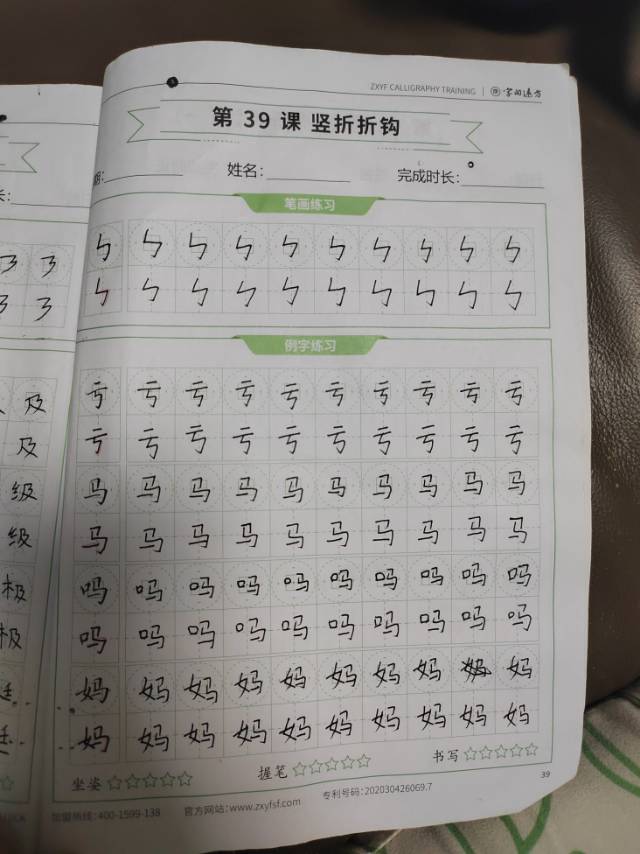 ZXYF CALLIGRAPHY TRAINING | 字由远方
第 39 课 竖折折钩
期: 姓名: 完成时长:
笔画练习
㇉ ㇉ ㇉ ㇉ ㇉ ㇉ ㇉ ㇉ ㇉ ㇉
㇉ ㇉ ㇉ ㇉ ㇉ ㇉ ㇉ ㇉ ㇉ ㇉
例字练习
亏 亏 亏 亏 亏 亏 亏 亏 亏 亏
亏 亏 亏 亏 亏 亏 亏 亏 亏 亏
马 马 马 马 马 马 马 马 马 马
马 马 马 马 马 马 马 马 马 马
吗 吗 吗 吗 吗 吗 吗 吗 吗 吗
吗 吗 吗 吗 吗 吗 吗 吗 吗 吗
妈 妈 妈 妈 妈 妈 妈 妈 妈 妈
妈 妈 妈 妈 妈 妈 妈 妈 妈 妈
坐姿 ☆☆☆☆☆ 握笔 ☆☆☆☆☆ 书写 ☆☆☆☆☆
加盟热线: 400-1599-138 官方网站: www.zxyfsf.com 专利号码: 202030426069.7
39
及
及
级
级
极
极
廷
廷